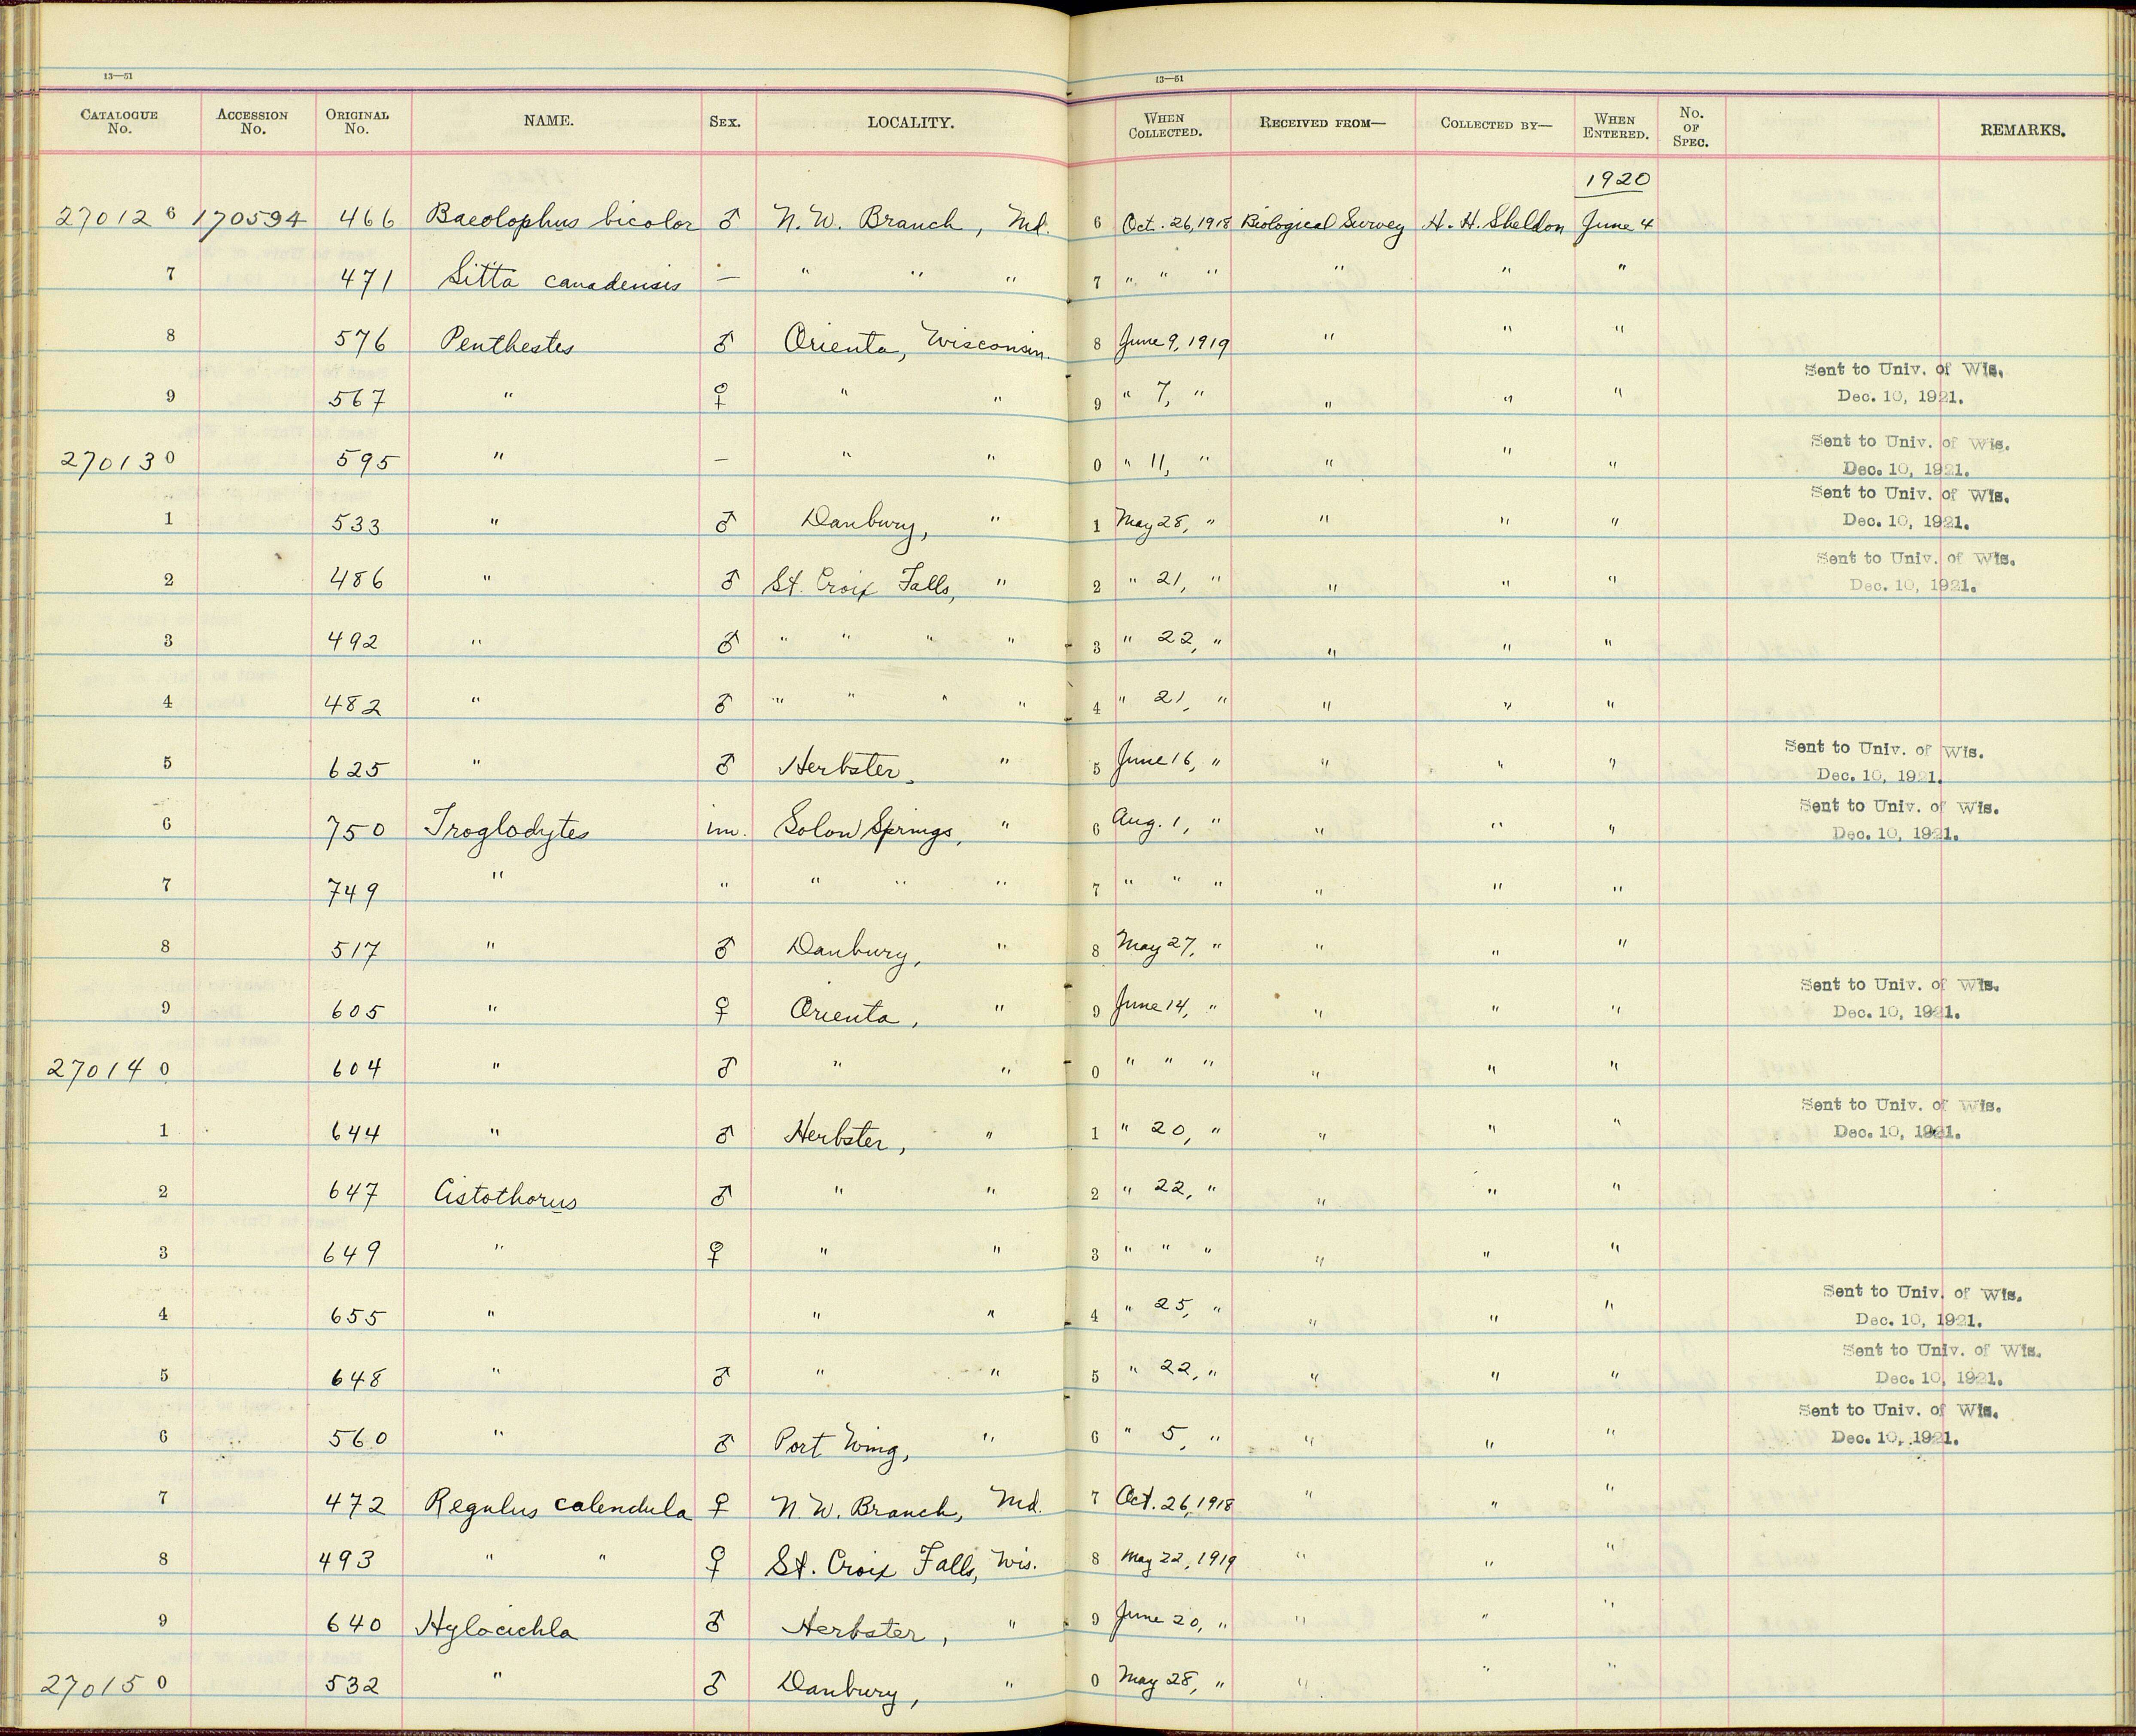 13—51 13—51
CATALOGUE No. ACCESSION No. ORIGINAL No. NAME. SEX. LOCALITY. WHEN COLLECTED. RECEIVED FROM— COLLECTED BY— WHEN ENTERED. No. OF SPEC. REMARKS.
1920
270126 170594 466 Baeolophus bicolor ♂ N. W. Branch, Md. 6 Oct. 26, 1918 Biological Survey H. H. Sheldon June 4
7 471 Sitta canadensis — " " " 7 " " " " " "
8 576 Penthestes ♂ Orienta, Wisconsin. 8 June 9, 1919 " " "
9 567 " ♀ " " 9 " 7, " " " " Sent to Univ. of Wis. Dec. 10, 1921.
270130 595 " — " " 0 " 11, " " " " Sent to Univ. of Wis. Dec. 10, 1921.
1 533 " ♂ Danbury, " 1 May 28, " " " " Sent to Univ. of Wis. Dec. 10, 1921.
2 486 " ♂ St. Croix Falls, " 2 " 21, " " " " Sent to Univ. of Wis. Dec. 10, 1921.
3 492 " ♂ " " " " 3 " 22, " " " "
4 482 " ♂ " " " " 4 " 21, " " " "
5 625 " ♂ Herbster, " 5 June 16, " " " " Sent to Univ. of Wis. Dec. 10, 1921.
6 750 Troglodytes im. Solon Springs, " 6 Aug. 1, " " " " Sent to Univ. of Wis. Dec. 10, 1921.
7 749 " " " " " 7 " " " " " "
8 517 " ♂ Danbury, " 8 May 27, " " " "
9 605 " ♀ Orienta, " 9 June 14, " " " " Sent to Univ. of Wis. Dec. 10, 1921.
270140 604 " ♂ " " 0 " " " " " "
1 644 " ♂ Herbster, " 1 " 20, " " " " Sent to Univ. of Wis. Dec. 10, 1921.
2 647 Cistothorus ♂ " " 2 " 22, " " " "
3 649 " ♀ " " 3 " " " " " "
4 655 " " " 4 " 25, " " " " Sent to Univ. of Wis. Dec. 10, 1921.
5 648 " ♂ " " 5 " 22, " " " " Sent to Univ. of Wis. Dec. 10, 1921.
6 560 " ♂ Port Wing, " 6 " 5, " " " " Sent to Univ. of Wis. Dec. 10, 1921.
7 472 Regulus calendula ♀ N. W. Branch, Md. 7 Oct. 26, 1918 " " "
8 493 " " ♀ St. Croix Falls, Wis. 8 May 22, 1919 " " "
9 640 Hylocichla ♂ Herbster, " 9 June 20, " " " "
270150 532 " ♂ Danbury, " 0 May 28, " " " "